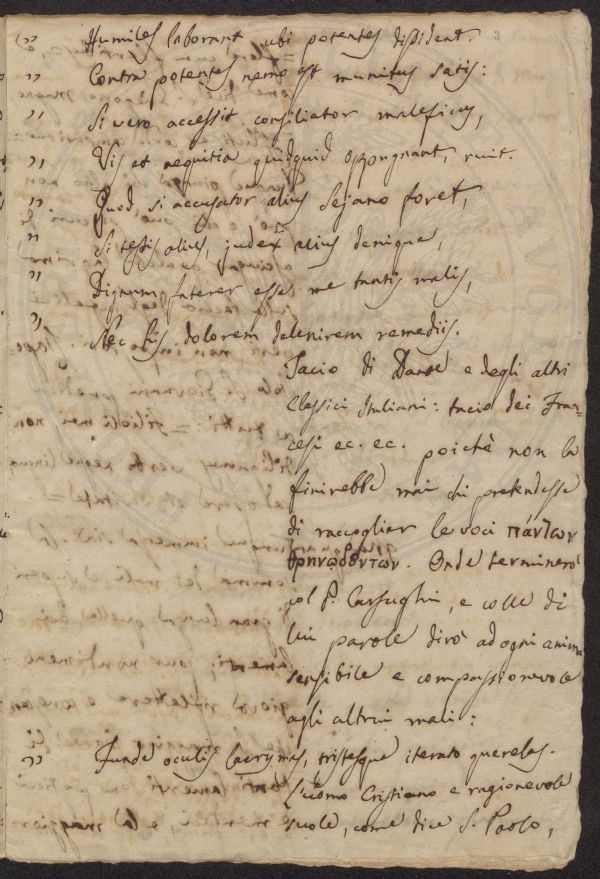 " Humiles laborant ubi potentes dissident.
" Contra potentes nemo est munitus satis:
" Si vero accessit consiliator maleficus,
" Vis et nequitia quidquid oppugnant, ruit.
" Quod si accusator alius Sejano foret,
" Si testis alius, judex alius denique,
" Dignum faterer esse me tantis malis,
" Nec his dolorem delenirem remediis.
Tacio di Dante e degli altri
Classici Italiani: tacio dei Fran=
cesi ec. ec. poichè non la
finirebbe mai chi pretendesse
di raccoglier le voci πάντων
θρηνῳδούντων. Onde terminerò
col P. Carsughi, e colle di
lui parole dirò ad ogni anima
sensibile e compassionevole
agli altrui mali:
" Funde oculis lacrymas, tristesque iterato querelas.
L'uomo Cristiano e ragionevole
suole, come dice S. Paolo,